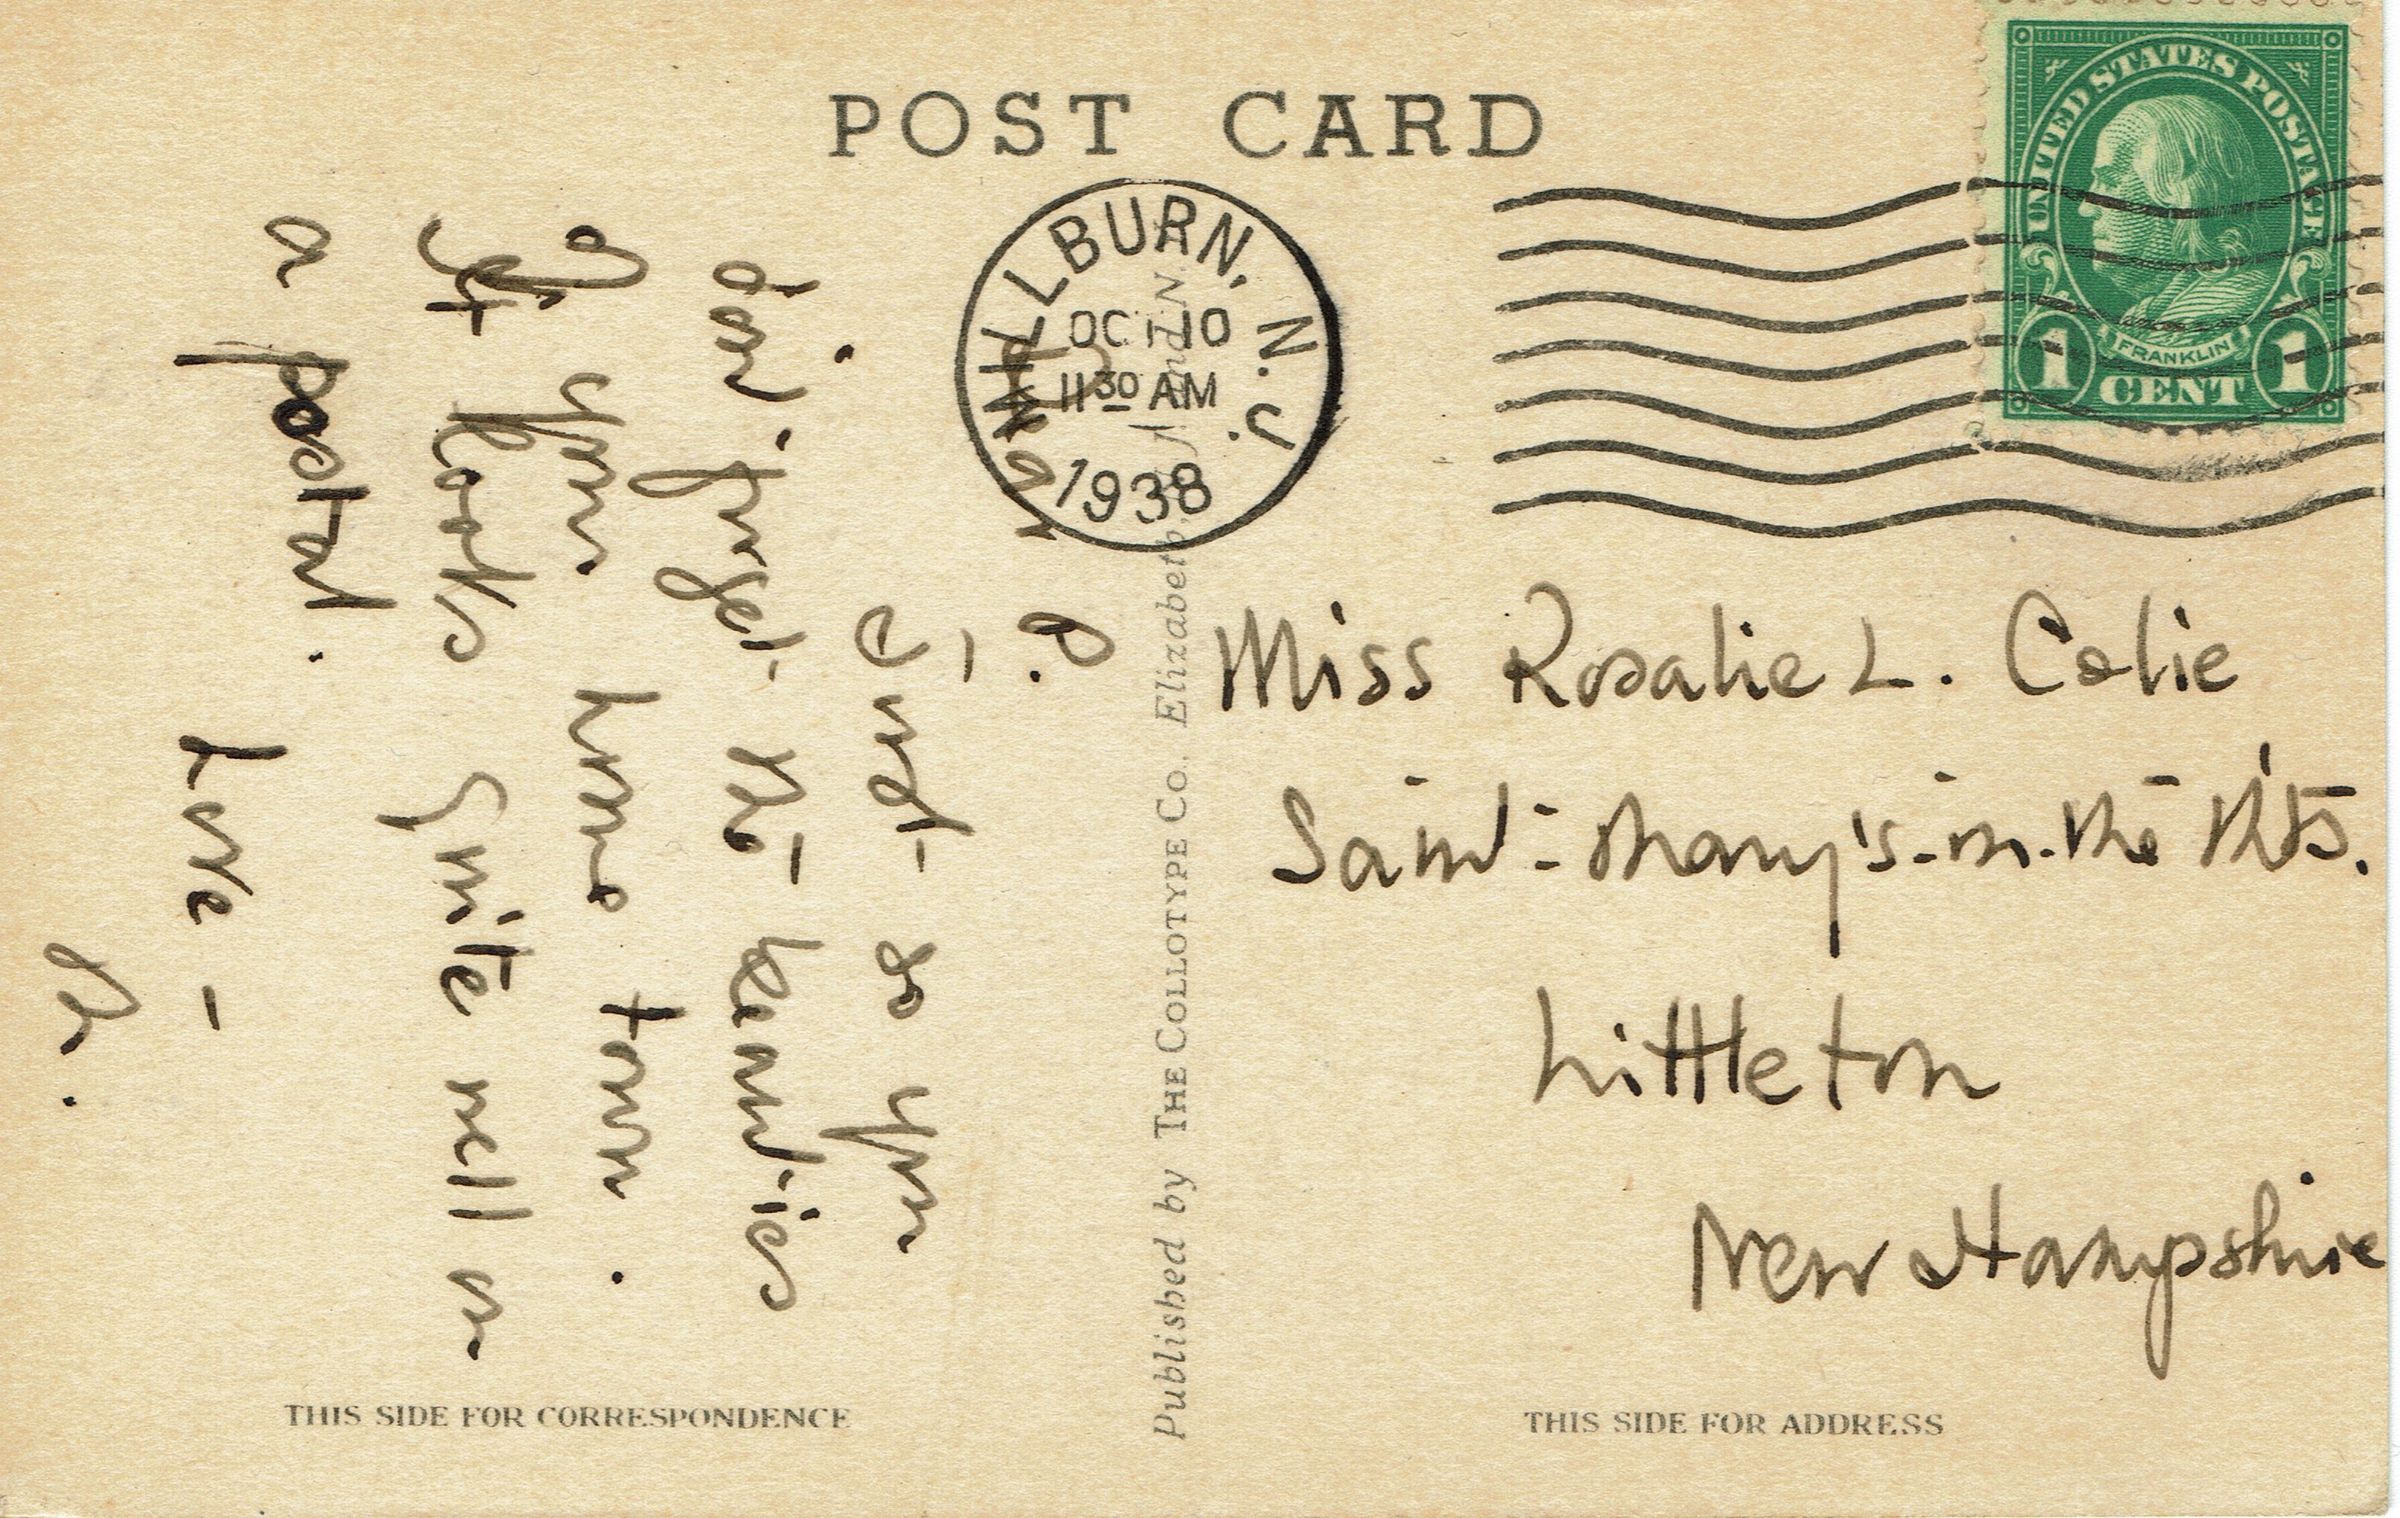 POST CARD
UNITED STATES POSTAGE
FRANKLIN
1 CENT 1
MILLBURN, N. J.
OCT 10
11 30 AM
1938
Dear R. -
Just so you
don't forget the beauties
of your home town.
It looks quite well on
a postal.
Love -
Published by THE COLLOTYPE CO., Elizabeth, N. J. and N.
Miss Rosalie L. Colie
Saint-Mary's-in-the Mts.
Littleton
New Hampshire
THIS SIDE FOR CORRESPONDENCE
THIS SIDE FOR ADDRESS